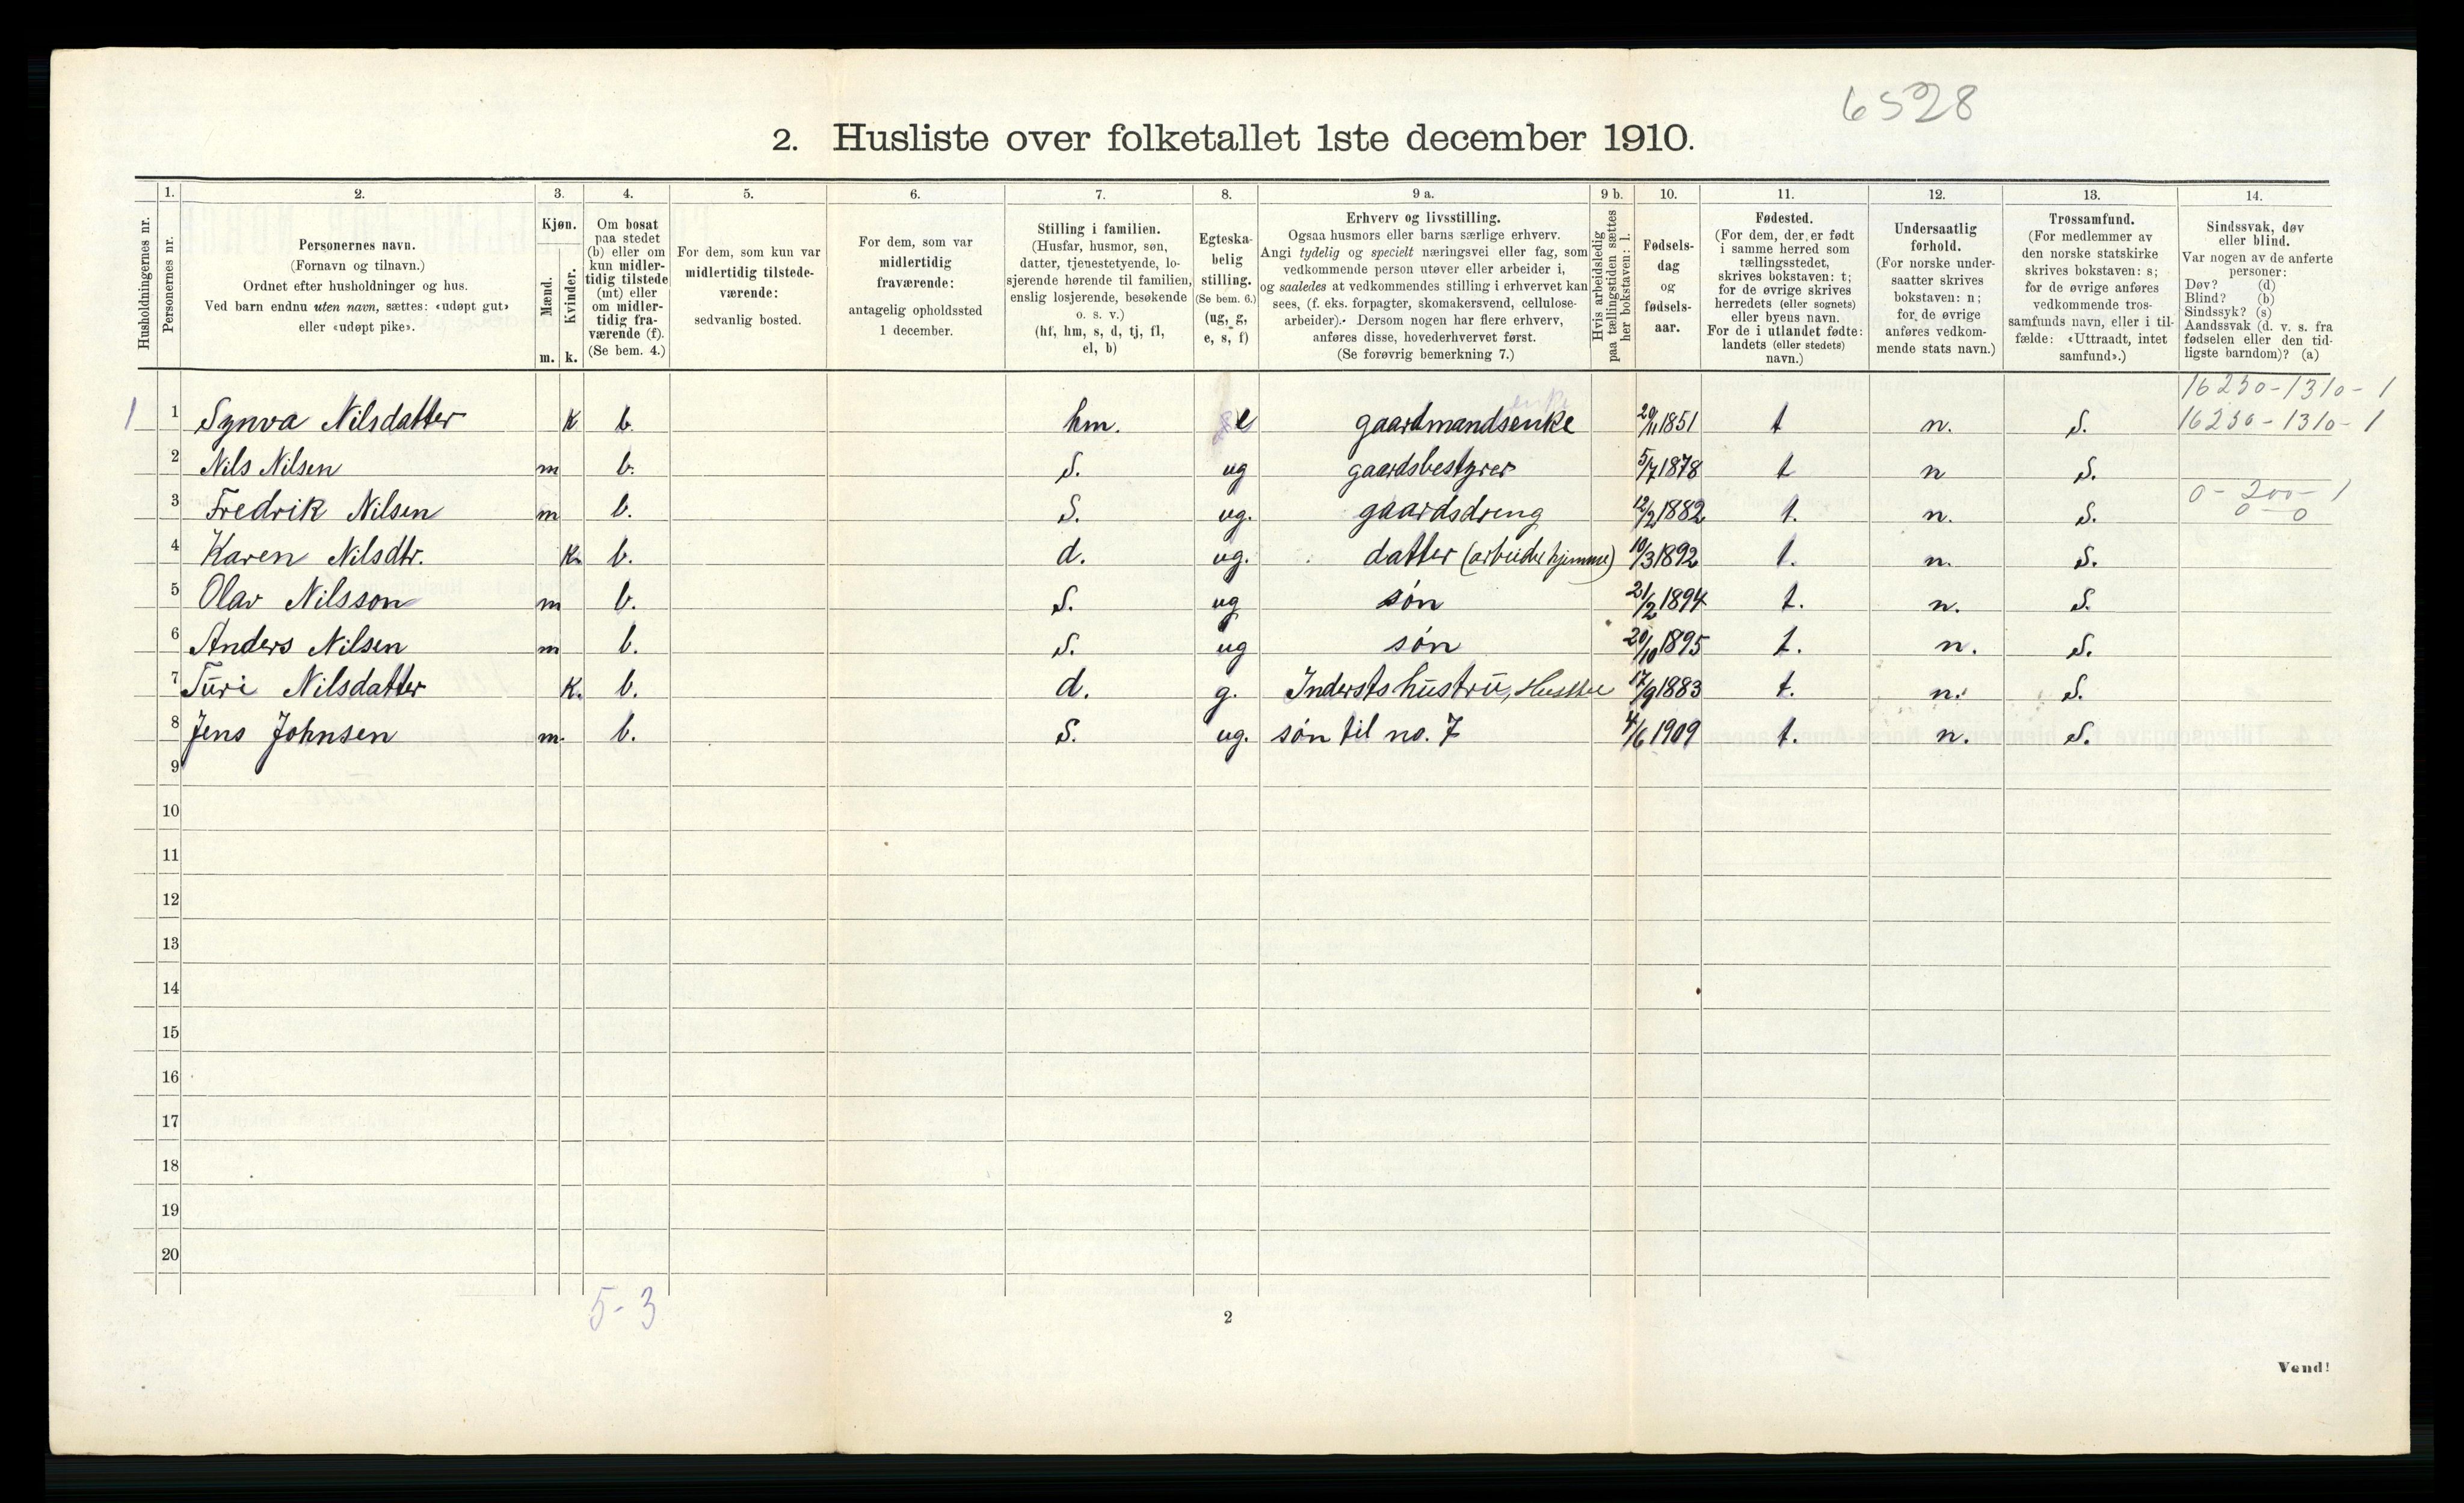 6528
2. Husliste over folketallet 1ste december 1910.
Husholdningernes nr.
1.
Personernes nr.
2.
Personernes navn.
(Fornavn og tilnavn.)
Ordnet efter husholdninger og hus.
Ved barn endnu uten navn, sættes: «udøpt gut»
eller «udøpt pike».
3.
Kjøn.
Mænd.
Kvinder.
m. k.
4.
Om bosat
paa stedet
(b) eller om
kun midler-
tidig tilstede
(mt) eller
om midler-
tidig fra-
værende (f).
(Se bem. 4.)
5.
For dem, som kun var
midlertidig tilstede-
værende:
sedvanlig bosted.
6.
For dem, som var
midlertidig
fraværende:
antagelig opholdssted
1 december.
7.
Stilling i familien.
(Husfar, husmor, søn,
datter, tjenestetyende, lo-
sjerende hørende til familien,
enslig losjerende, besøkende
o. s. v.)
(hf, hm, s, d, tj, fl,
el, b)
8.
Egteska-
belig
stilling.
(Se bem. 6.)
(ug, g,
e, s, f)
9 a.
Erhverv og livsstilling.
Ogsaa husmors eller barns særlige erhverv.
Angi tydelig og specielt næringsvei eller fag, som
vedkommende person utøver eller arbeider i,
og saaledes at vedkommendes stilling i erhvervet kan
sees, (f. eks. forpagter, skomakersvend, cellulose-
arbeider). Dersom nogen har flere erhverv,
anføres disse, hovederhvervet først.
(Se forøvrig bemerkning 7.)
9 b.
Hvis arbeidsledig
paa tællingstiden sættes
her bokstaven: l.
10.
Fødsels-
dag
og
fødsels-
aar.
11.
Fødested.
(For dem, der er født
i samme herred som
tællingsstedet,
skrives bokstaven: t;
for de øvrige skrives
herredets (eller sognets)
eller byens navn.
For de i utlandet fødte:
landets (eller stedets)
navn.)
12.
Undersaatlig
forhold.
(For norske under-
saatter skrives
bokstaven: n;
for de øvrige
anføres vedkom-
mende stats navn.)
13.
Trossamfund.
(For medlemmer av
den norske statskirke
skrives bokstaven: s;
for de øvrige anføres
vedkommende tros-
samfunds navn, eller i til-
fælde: «Uttraadt, intet
samfund».)
14.
Sindssvak, døv
eller blind.
Var nogen av de anførte
personer:
Døv? (d)
Blind? (b)
Sindssyk? (s)
Aandssvak (d. v. s. fra
fødselen eller den tid-
ligste barndom)? (a)
16230-1310-1
1 1 Synva Nilsdatter K b. hm. e gaardmandsenke 29/11 1851 t n. S. 16230-1310-1
2 Nils Nilsen m b. S. ug gaardsbestyrer 5/7 1878 t n S.
0-200-1
3 Fredrik Nilsen m b. S. ug. gaardsdreng 12/2 1882 t. n. S. 0-0
4 Karen Nilsdtr. K. b. d. ug. datter (arbeider hjemme) 10/3 1892 t. n. S.
5 Olav Nilsson m b. S. ug søn 21/2 1894 t. n. S.
6 Anders Nilsen m b. S. ug søn 20/10 1895 t. n. S.
7 Turi Nilsdatter K. b. d. g. Inderstshustru, 17/9 1883 t. n. S.
8 Jens Johnsen m. b. S. ug. søn til no. 7 4/6 1909 t. n. S.
9
10
11
12
13
14
15
16
17
18
19
20
5-3
2
Vend!